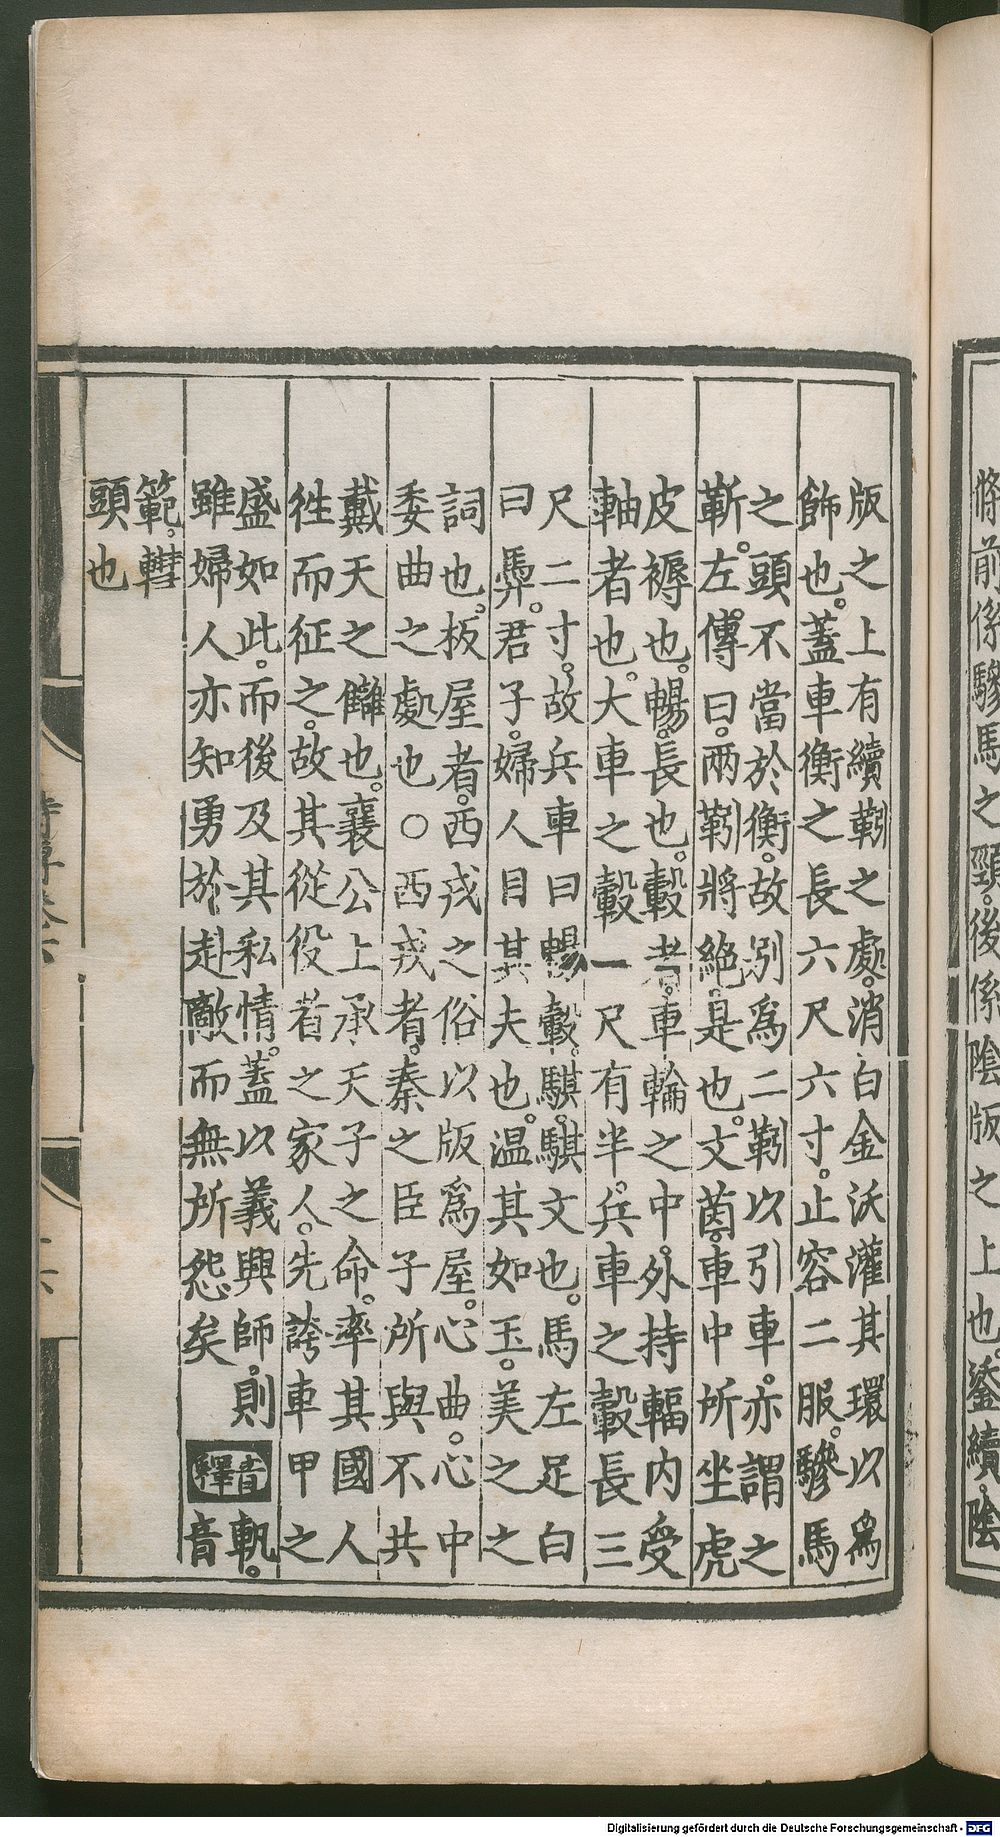 版之上有續靷之處。消白金沃灌其環以爲
飾也。蓋車衡之長六尺六寸。止容二服。驂馬
之頭不當於衡。故別爲二靷以引車。亦謂之
靳。左傳曰。兩靷將絕。是也。文茵。車中所坐虎
皮褥也。暢。長也。轂者。車輪之中。外持輻內受
軸者也。大車之轂一尺有半。兵車之轂長三
尺二寸。故兵車曰暢轂。騏。騏文也。馬左足白
曰馵。君子。婦人目其夫也。温其如玉。美之之
詞也。板屋者。西戎之俗以版爲屋。心曲。心中
委曲之處也○西戎者。秦之臣子所與不共
戴天之讎也。襄公上承天子之命。率其國人
徃而征之。故其從役者之家人。先誇車甲之
盛如此。而後及其私情。蓋以義興師。則
雖婦人亦知勇於赴敵而無所怨矣
音釋
軓。音
範。轊
頭也
詩傳卷六
二六
將前係驂馬之頸。後係陰版之上也。鋈續。陰
Digitalisierung gefördert durch die Deutsche Forschungsgemeinschaft - DFG